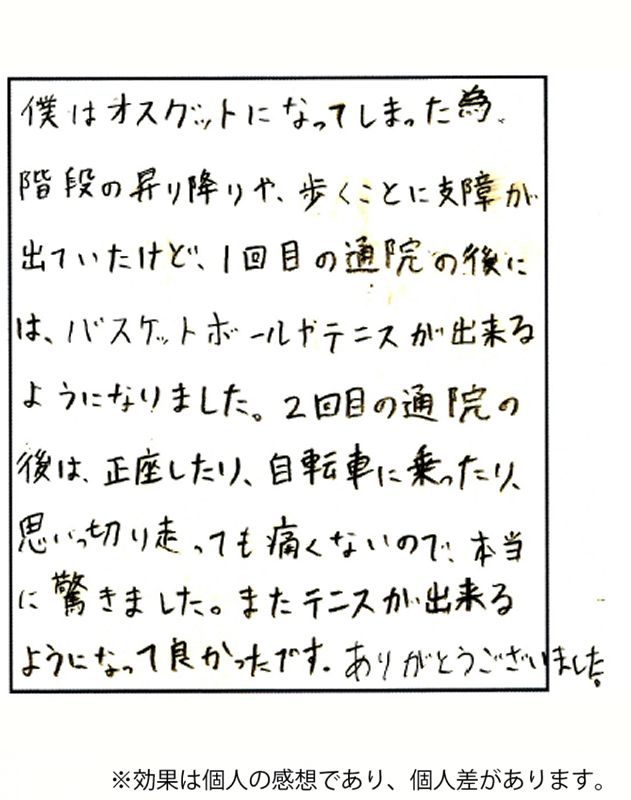 僕はオスグットになってしまった為、
階段の昇り降りや、歩くことに支障が
出ていたけど、1回目の通院の後に
は、バスケットボールやテニスが出来る
ようになりました。2回目の通院の
後は、正座したり、自転車に乗ったり、
思いっ切り走っても痛くないので、本当
に驚きました。またテニスが出来る
ようになって良かったです。ありがとうございました。
※効果は個人の感想であり、個人差があります。